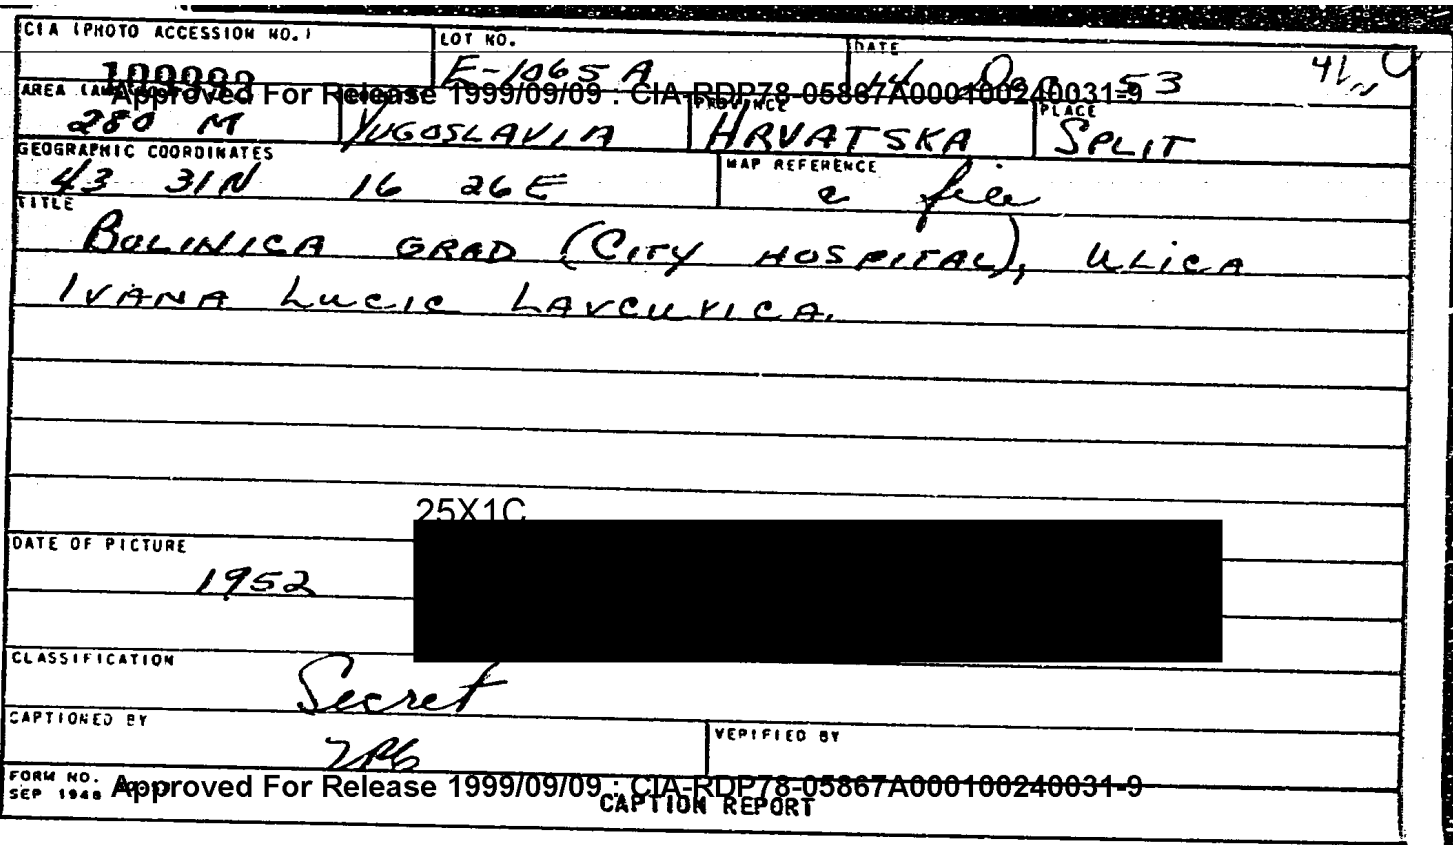 CIA (PHOTO ACCESSION NO.) LOT NO. DATE
E-1065 A 14 Dec 53 41
Approved For Release 1999/09/09 : CIA-RDP78-05867A000100240031-9
AREA PROVINCE PLACE
280 M YUGOSLAVIA HRVATSKA SPLIT
GEOGRAPHIC COORDINATES MAP REFERENCE
43 31N 16 26E file
TITLE
BOLINICA GRAD (CITY HOSPITAL), ULICA
IVANA LUCIC LAVCEVICA.
25X1C
DATE OF PICTURE
1952
CLASSIFICATION
Secret
CAPTIONED BY VERIFIED BY
FORM NO.
SEP 1948 Approved For Release 1999/09/09 : CIA-RDP78-05867A000100240031-9
CAPTION REPORT